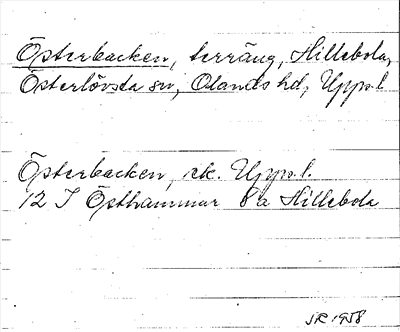 Österbacken, terräng, Hillebola,
Österlövsta sn, Olands hd, Upps.l.
Österbacken, ek. Upps.l.
12 I Östhammar 8a Hillebola
JR 1958